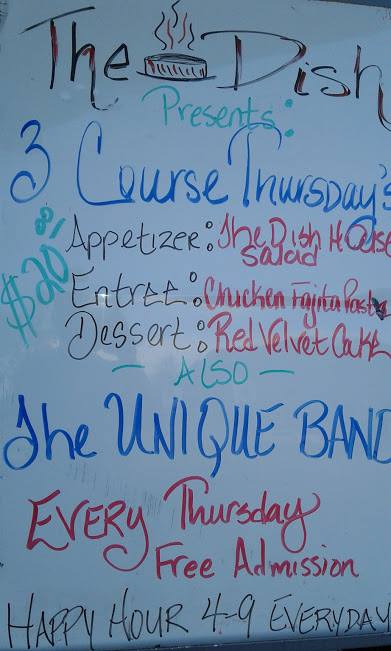 The Dish
Presents:
3 Course Thursday's
Appetizer: The Dish House
Salad
$20
Entree: Chicken Fajita Pasta
Dessert: Red Velvet Cake
— ALSO —
The UNIQUE BAND
EVERY Thursday
Free Admission
HAPPY HOUR 4-9 EVERYDAY